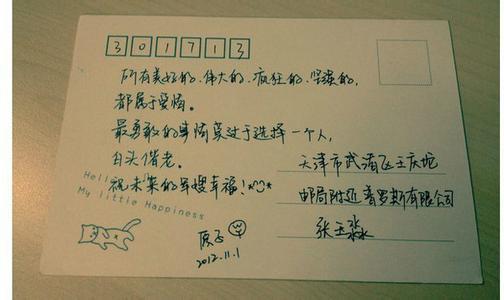 301713
所有美好的、伟大的、疯狂的、坚强的,
都属于爱情。
最勇敢的事情莫过于选择一个人,
白头偕老。
祝未来的军嫂幸福!
Hell
My little Happiness
天津市武清区王庆坨
邮局附近普罗斯有限公司
张玉淼
2012.11.1